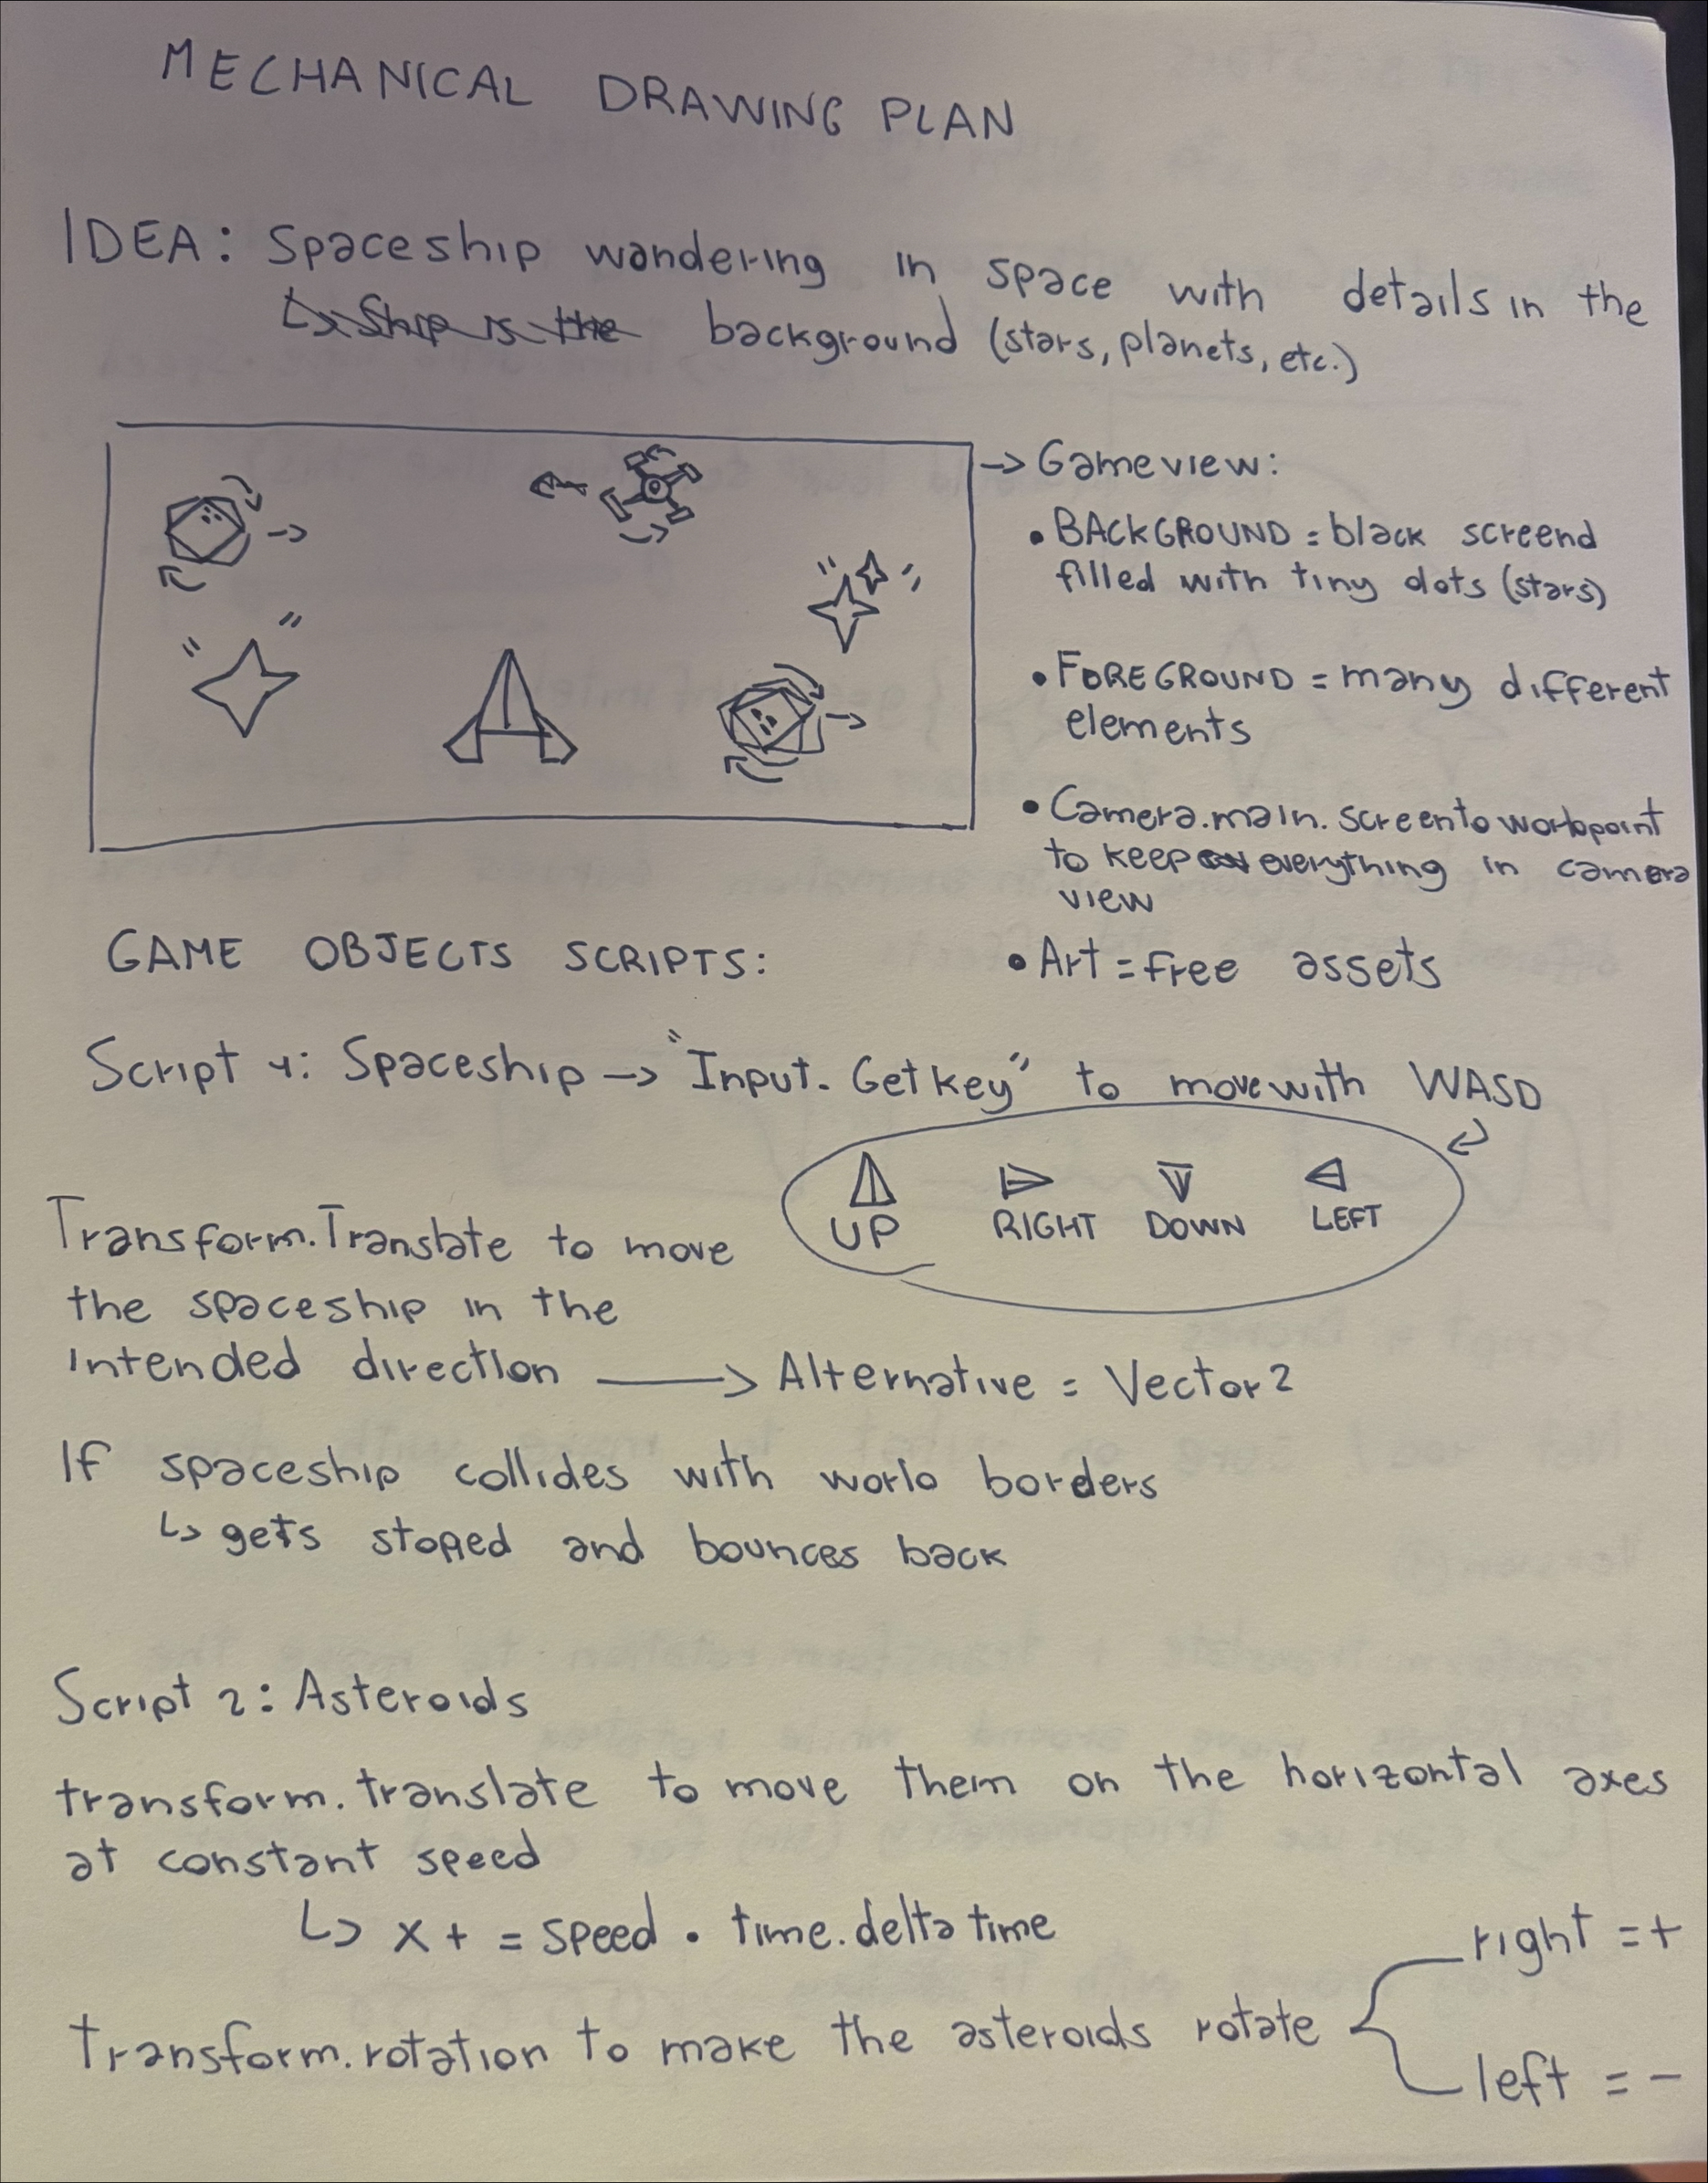 MECHANICAL DRAWING PLAN
IDEA: Spaceship wandering in space with details in the
↳ Ship is the background (stars, planets, etc.)
→ Gameview:
• BACKGROUND = black screend
filled with tiny dots (stars)
• FOREGROUND = many different
elements
• Camera.main.screentoworldpoint
to keep everything in camera
view
• Art = free assets
GAME OBJECTS SCRIPTS:
Script 1: Spaceship → "Input.Getkey" to move with WASD
UP RIGHT DOWN LEFT
Transform.Translate to move
the spaceship in the
intended direction → Alternative = Vector2
If spaceship collides with world borders
↳ gets stopped and bounces back
Script 2: Asteroids
transform.translate to move them on the horizontal axes
at constant speed
↳ x += speed · time.delta time
right = +
Transform.rotation to make the asteroids rotate
left = -